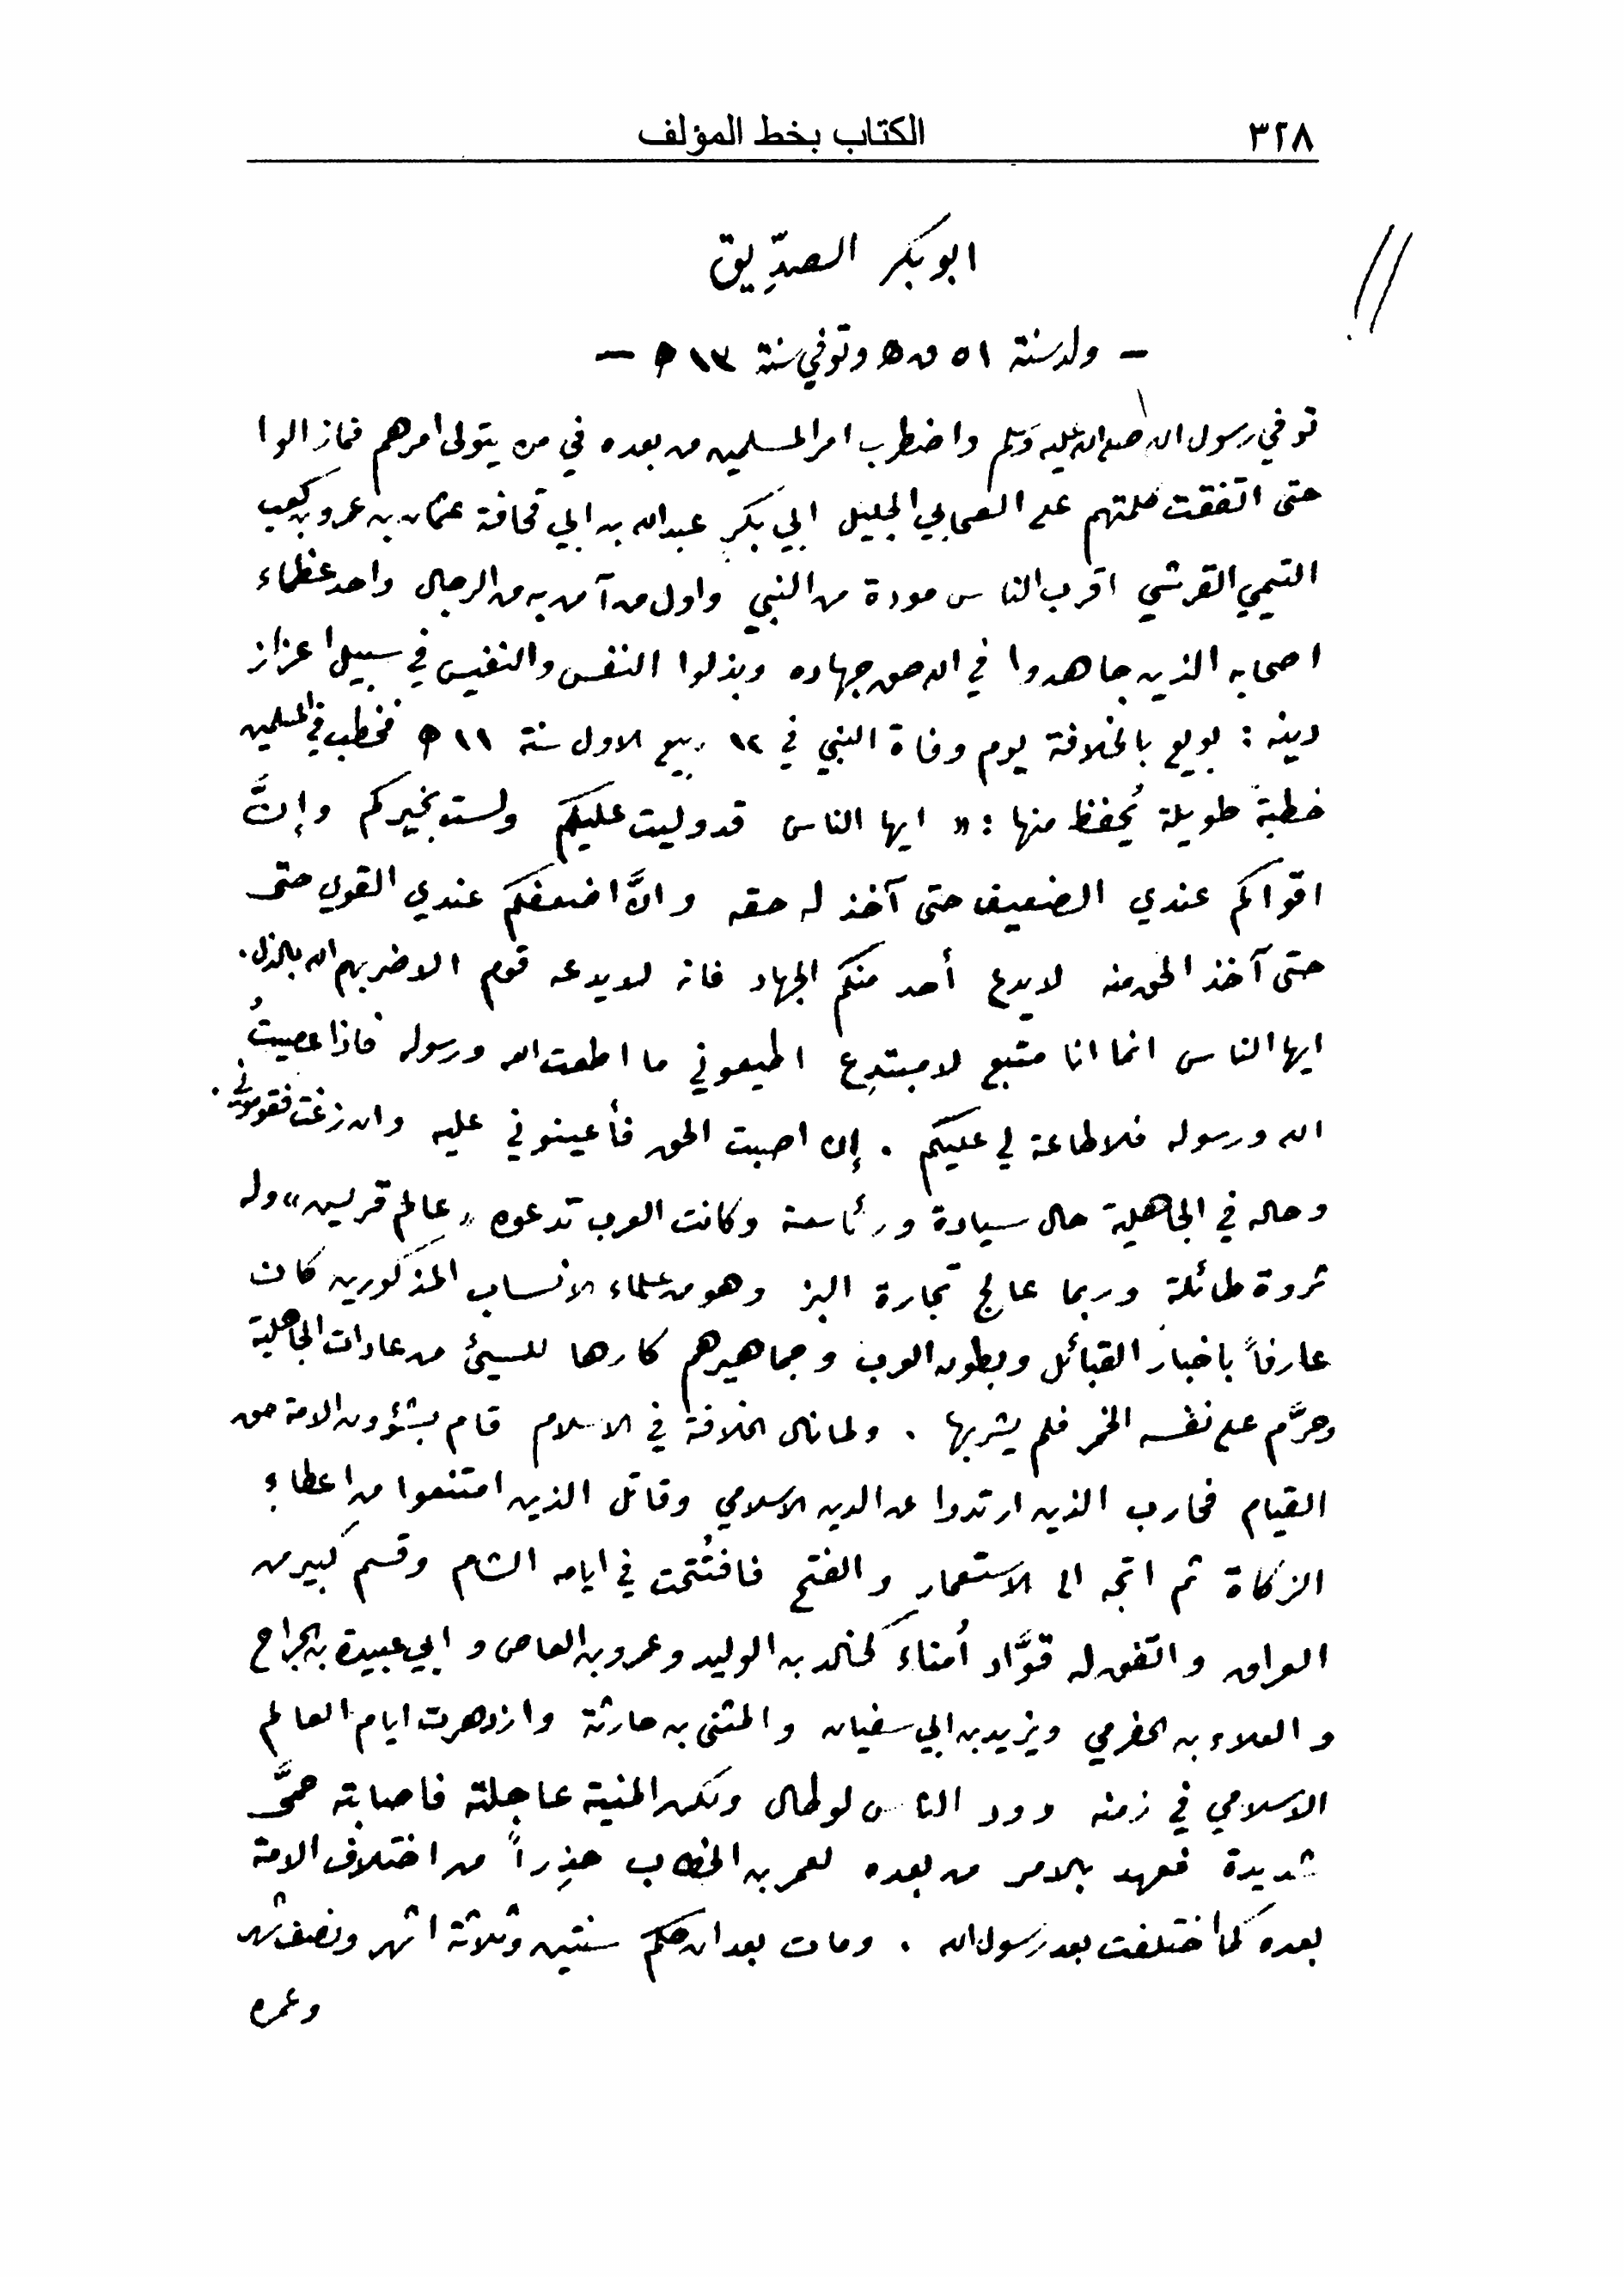 ٣٢٨ الكتاب بخط المؤلف
ابو بكر الصدِّيق
– ولد سنة ٥١ ق ه وتوفي سنة ١٣ ه –
توفي رسول الله صلى الله عليه وسلم واضطرب امر المسلمين من بعده في من يتولى امرهم فما زالوا
حتى اتفقت كلمتهم على الصحابي الجليل ابي بكر عبدالله بن ابي قحافة عثمان بن عمرو بن كعب
التيمي القرشي اقرب الناس مودة من النبي واول من آمن به من الرجال واحد عظماء
اصحابه الذين جاهدوا في الله حق جهاده وبذلوا النفس والنفيس في سبيل اعزاز
دينه : بويع بالخلافة يوم وفاة النبي في ١٢ ربيع الاول سنة ١١ ه فخطب في المسلمين
خطبةً طويلة يُحفظ منها : « ايها الناس قد وليت عليكم ولست بخيركم وإنَّ
اقواكم عندي الضعيف حتى آخذ له حقه وانَّ اضعفكم عندي القوي حتى
حتى آخذ الحق منه لا يدع أحد منكم الجهاد فانه لا يدعه قوم الا ضربهم الله بالذل .
ايها الناس انما انا متبع لا مبتدِع اطيعوني ما اطعت الله ورسوله فاذا عصيتُ
الله ورسوله فلا طاعة لي عليكم . إن اصبت الحق فأعينوني عليه وان زغت فقوموني .
وحاله في الجاهلية حال سيادة ورئاسة وكانت العرب تدعوه « عالم قريش » وله
ثروة طائلة وربما عالج تجارة البز وهو من علماء الانساب المذكورين كان
عارفاً باخبار القبائل وبطون العرب وجماهيرهم كارها للسيئ من عادات الجاهلية
وحرَّم على نفسه الخمر فلم يشربها . ولما نال الخلافة في الاسلام قام بشؤون الامة حق
القيام فحارب الذين ارتدوا عن الدين الاسلامي وقاتل الذين امتنعوا من اعطاء
الزكاة ثم اتجه الى الاستعمار والفتح فافتُتحت في ايامه الشام وقسم كبير من
العراق واتفق له قوَّاد أُمناء كخالد بن الوليد وعمرو بن العاص وابي عبيدة بن الجراح
والعلاء بن الحضرمي ويزيد بن ابي سفيان والمثنى بن حارثة وازدهرت ايام العالم
الاسلامي في زمنه وود الناس لو طال ولكن المنية عاجلته فاصابته حمَّى
شديدة فعهد بالامر من بعده لعمر بن الخطاب حذِراً من اختلاف الامة
بعده كما اختلفت بعد رسول الله . ومات بعد ان حكم سنتين وثلاثة اشهر ونصف شهر
وعمره